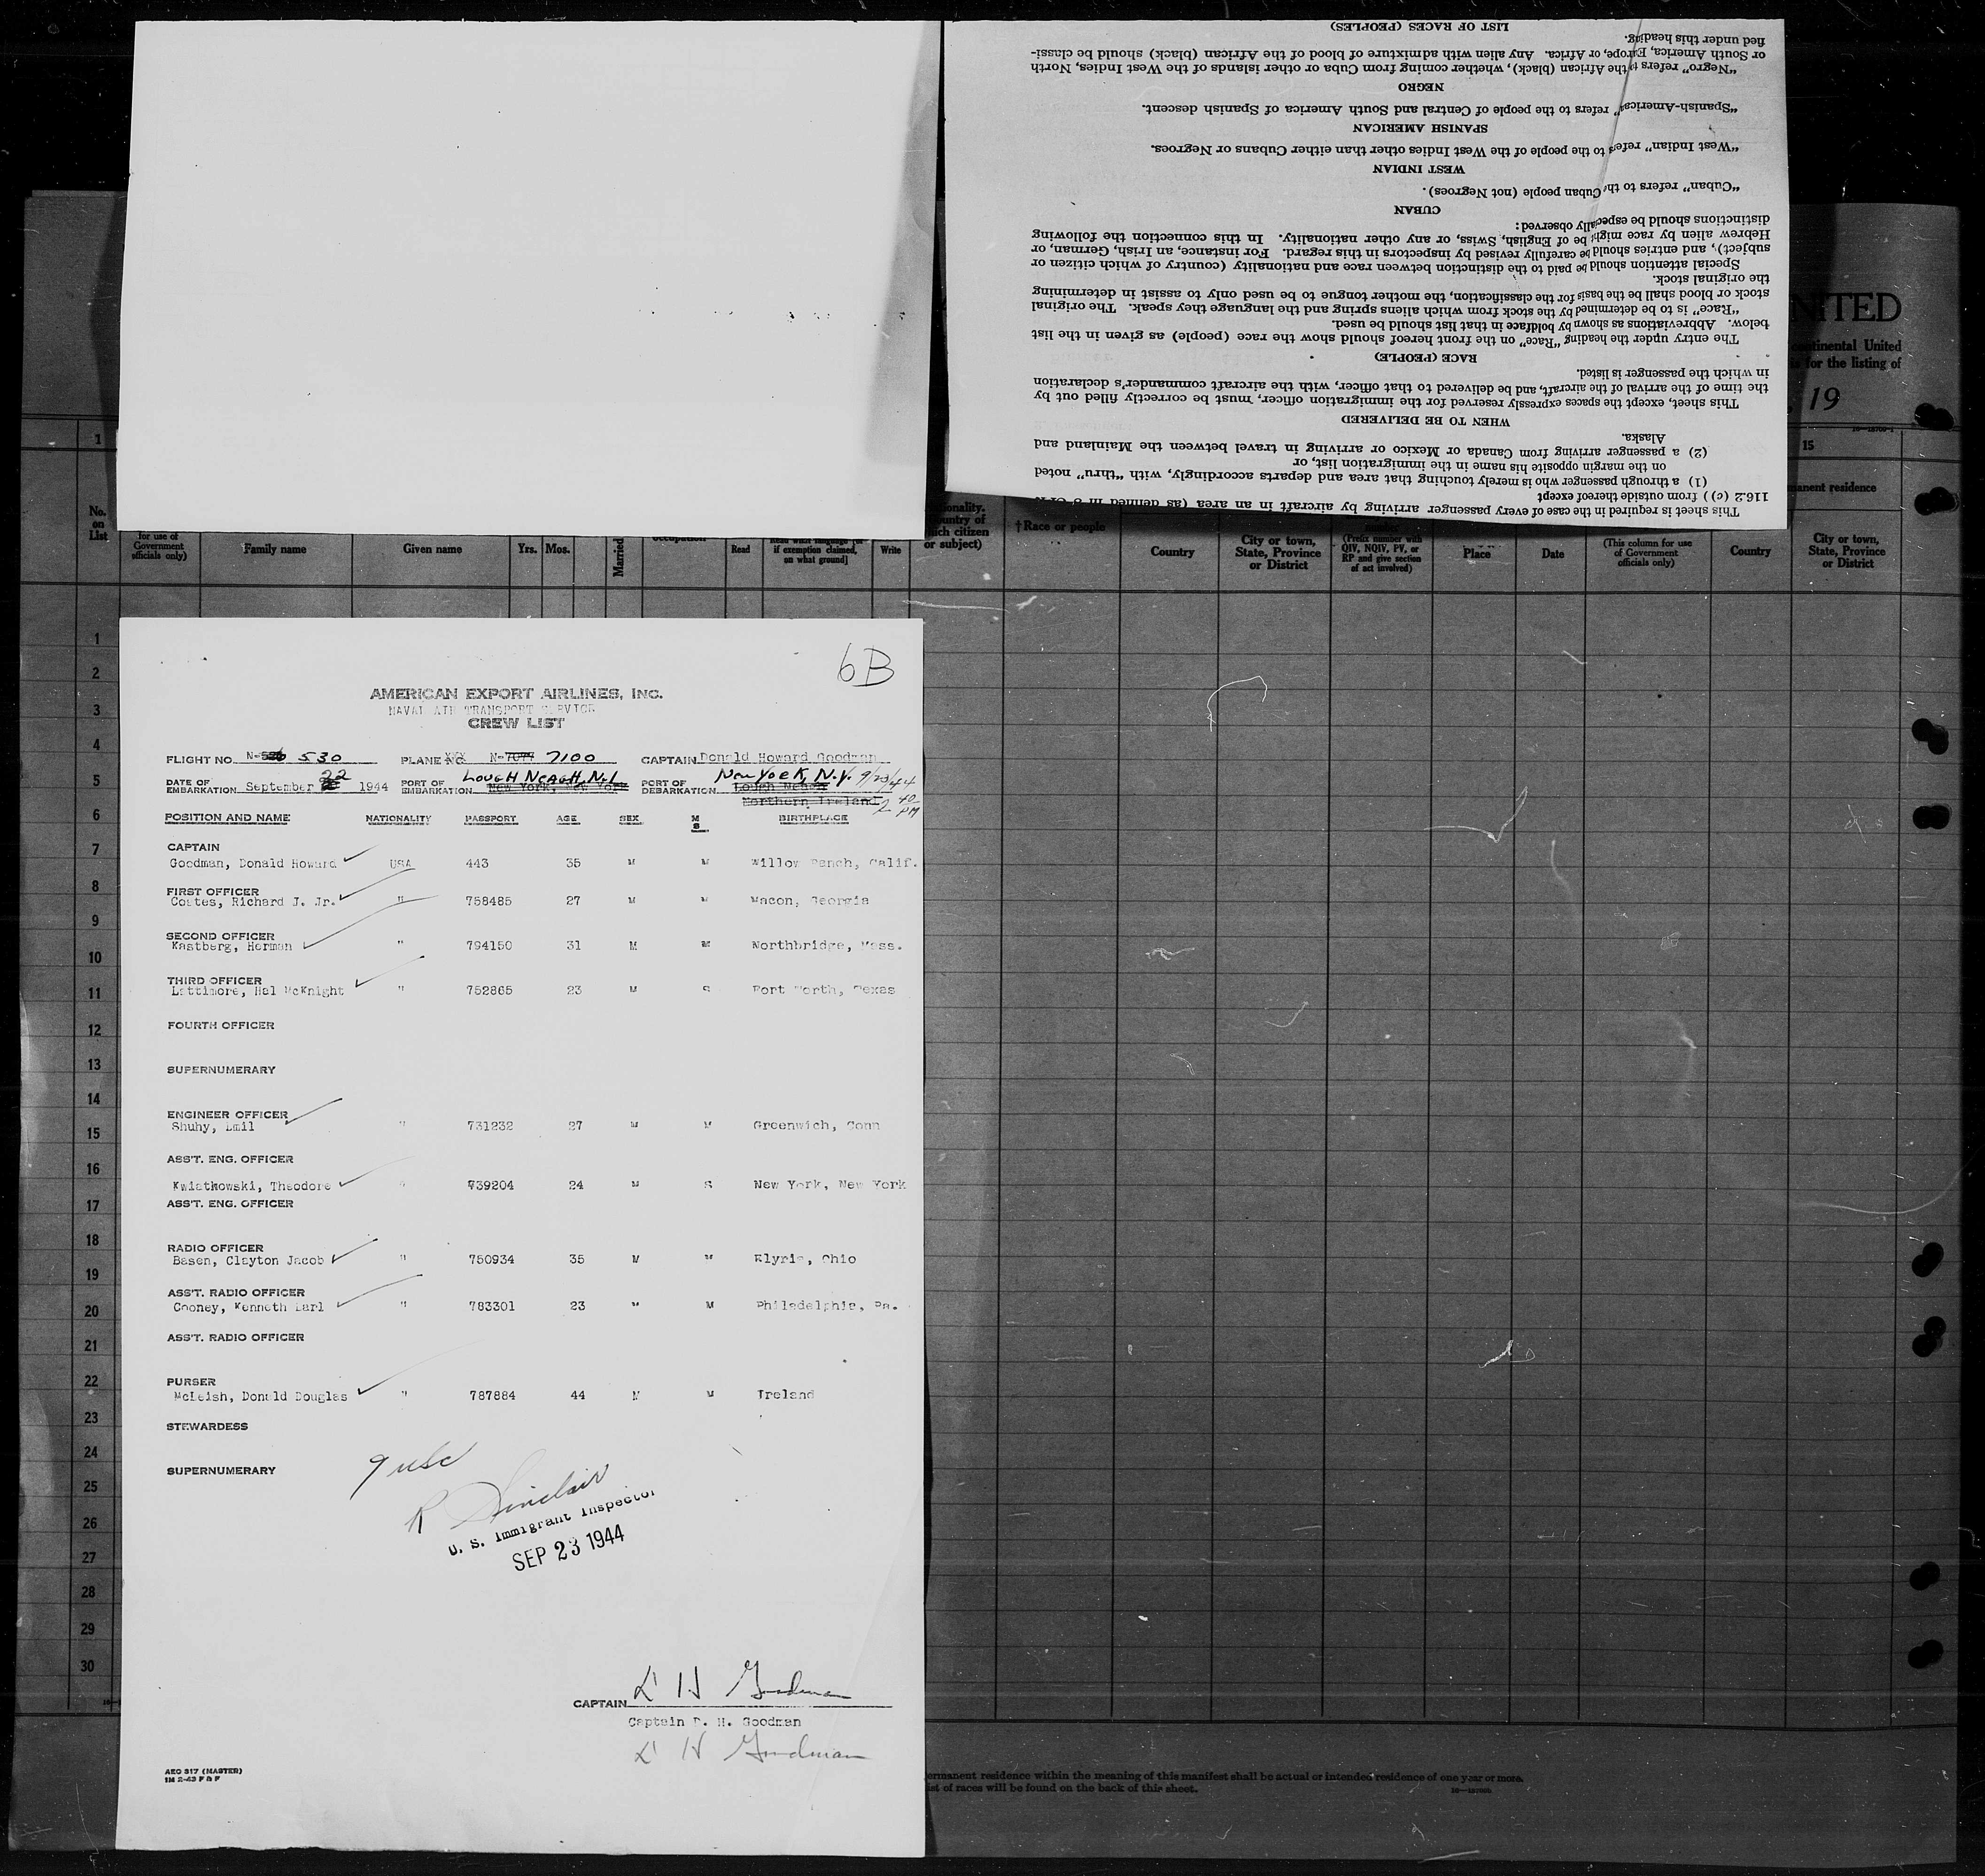 LIST OF RACES (PEOPLES)
fied under this heading.
or South America, Europe, or Africa. Any alien with admixture of blood of the African (black) should be classi-
"Negro" refers to the African (black), whether coming from Cuba or other islands of the West Indies, North
NEGRO
"Spanish-American" refers to the people of Central and South America of Spanish descent.
SPANISH AMERICAN
"West Indian" refers to the people of the West Indies other than either Cubans or Negroes.
WEST INDIAN
"Cuban" refers to the Cuban people (not Negroes).
CUBAN
distinctions should be especially observed:
Hebrew alien by race might be of English, Swiss, or any other nationality. In this connection the following
subject), and entries should be carefully revised by inspectors in this regard. For instance, an Irish, German, or
Special attention should be paid to the distinction between race and nationality (country of which citizen or
the original stock.
stock or blood shall be the basis for the classification, the mother tongue to be used only to assist in determining
"Race" is to be determined by the stock from which aliens spring and the language they speak. The original
below. Abbreviations as shown by boldface in that list should be used.
The entry under the heading "Race" on the front hereof should show the race (people) as given in the list
RACE (PEOPLE)
in which the passenger is listed.
the time of the arrival of the aircraft, and be delivered to that officer, with the aircraft commander's declaration
This sheet, except the spaces expressly reserved for the immigration officer, must be correctly filled out by
WHEN TO BE DELIVERED
Alaska.
(2) a passenger arriving from Canada or Mexico or arriving in travel between the Mainland and
on the margin opposite his name in the immigration list, or
(1) a through passenger who is merely touching that area and departs accordingly, with "thru" noted
116.2 (c)) from outside thereof except
This sheet is required in the case of every passenger arriving by aircraft in an area (as defined in 8 CFR
NITED
continental United
for the listing of
19
1
15
No. on List
for use of Government officials only)
Family name
Given name
Yrs.
Mos.
Married
Read
if exemption claimed, on what ground]
Write
onality.
untry of
ich citizen
or subject)
†Race or people
Country
City or town, State, Province or District
(Prefix number with QIV, NQIV, PV, or RP and give section of act involved)
Place
Date
(This column for use of Government officials only)
manent residence
Country
City or town, State, Province or District
1
2
3
4
5
6
7
8
9
10
11
12
13
14
15
16
17
18
19
20
21
22
23
24
25
26
27
28
29
30
6B
AMERICAN EXPORT AIRLINES, INC.
NAVAL AIR TRANSPORT SERVICE
CREW LIST
FLIGHT NO. N- 530 PLANE NO. N-7077 7100 CAPTAIN Donald Howard Goodman
DATE OF EMBARKATION September 22 1944 PORT OF EMBARKATION LOUGH NEAGH, N.I. New York, New York PORT OF DEBARKATION New York, N.Y. 9/23/44
Lough Neagh Northern Ireland 2 40 PM
POSITION AND NAME NATIONALITY PASSPORT AGE SEX M S BIRTHPLACE
CAPTAIN
Goodman, Donald Howard USA 443 35 M M Willow Ranch, Calif.
FIRST OFFICER
Coates, Richard J. Jr. " 758485 27 M M Macon, Georgia
SECOND OFFICER
Kastberg, Herman " 794150 31 M M Northbridge, Mass.
THIRD OFFICER
Lattimore, Hal McKnight " 752865 23 M S Fort Worth, Texas
FOURTH OFFICER
SUPERNUMERARY
ENGINEER OFFICER
Shuhy, Emil " 731232 27 M M Greenwich, Conn
ASS'T. ENG. OFFICER
Kwiatkowski, Theodore " 739204 24 M S New York, New York
ASS'T. ENG. OFFICER
RADIO OFFICER
Basen, Clayton Jacob " 750934 35 M M Elyria, Ohio
ASS'T. RADIO OFFICER
Cooney, Kenneth Earl " 783301 23 M M Philadelphia, Pa.
ASS'T. RADIO OFFICER
PURSER
McLeish, Donald Douglas " 787884 44 M M Ireland
STEWARDESS
SUPERNUMERARY
9 USC
R Sinclair
U. S. Immigrant Inspector
SEP 23 1944
CAPTAIN D H Goodman
Captain D. H. Goodman
D H Goodman
AEO 317 (MASTER)
1M 2-43 F & F
ermanent residence within the meaning of this manifest shall be actual or intended residence of one year or more.
ist of races will be found on the back of this sheet.